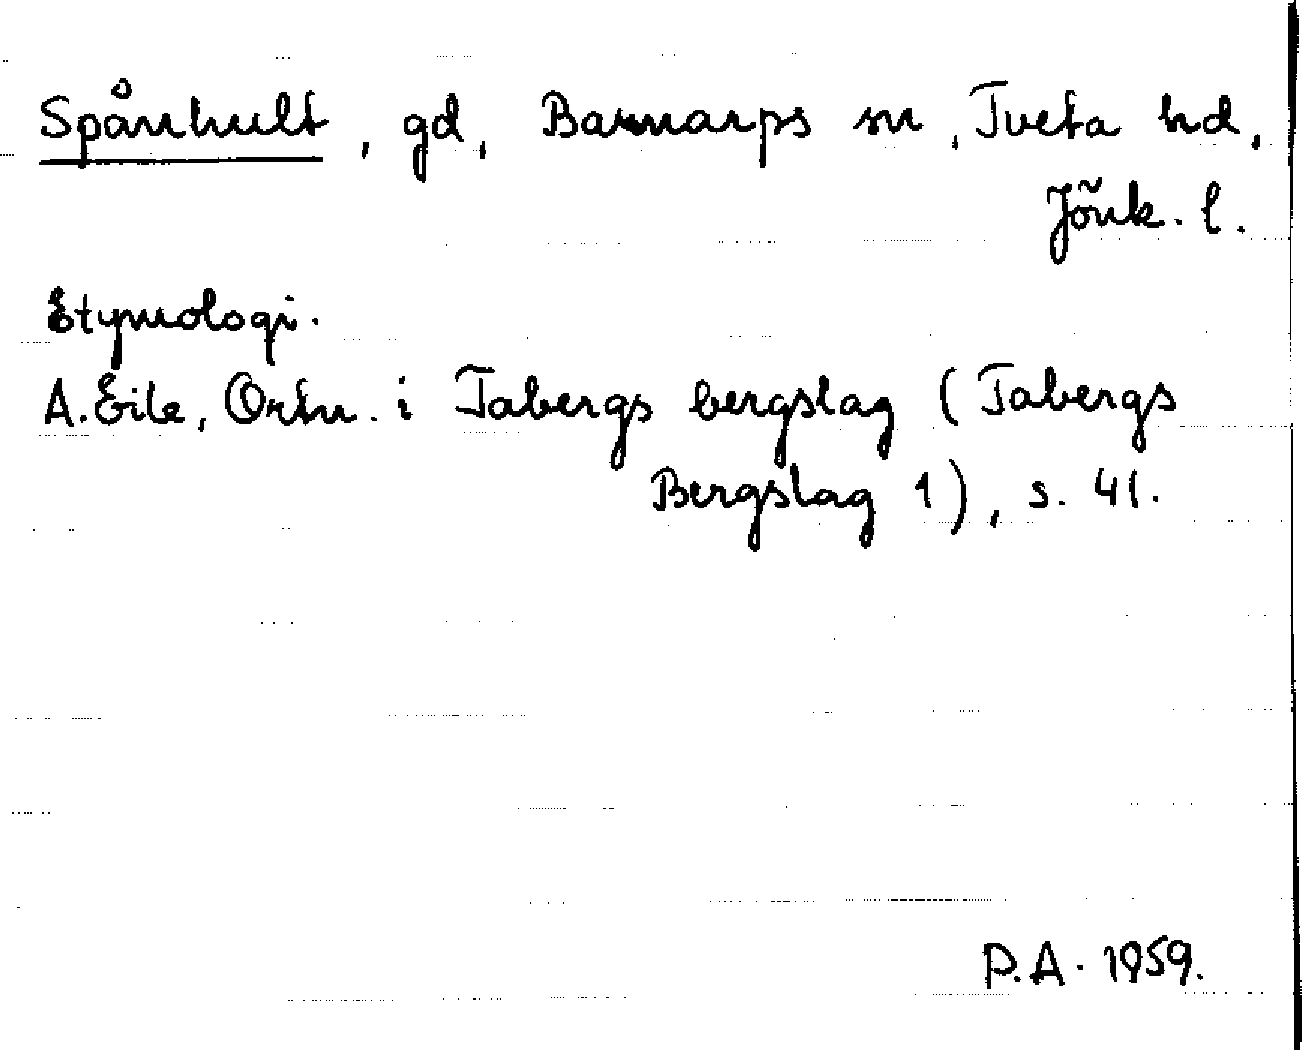 Spånhult, gd, Barnarps sn, Tveta hd,
Jönk. l.
Etymologi.
A. Eile, Ortn. i Tabergs bergslag (Tabergs
Bergslag 1), s. 41.
P.A. 1959.